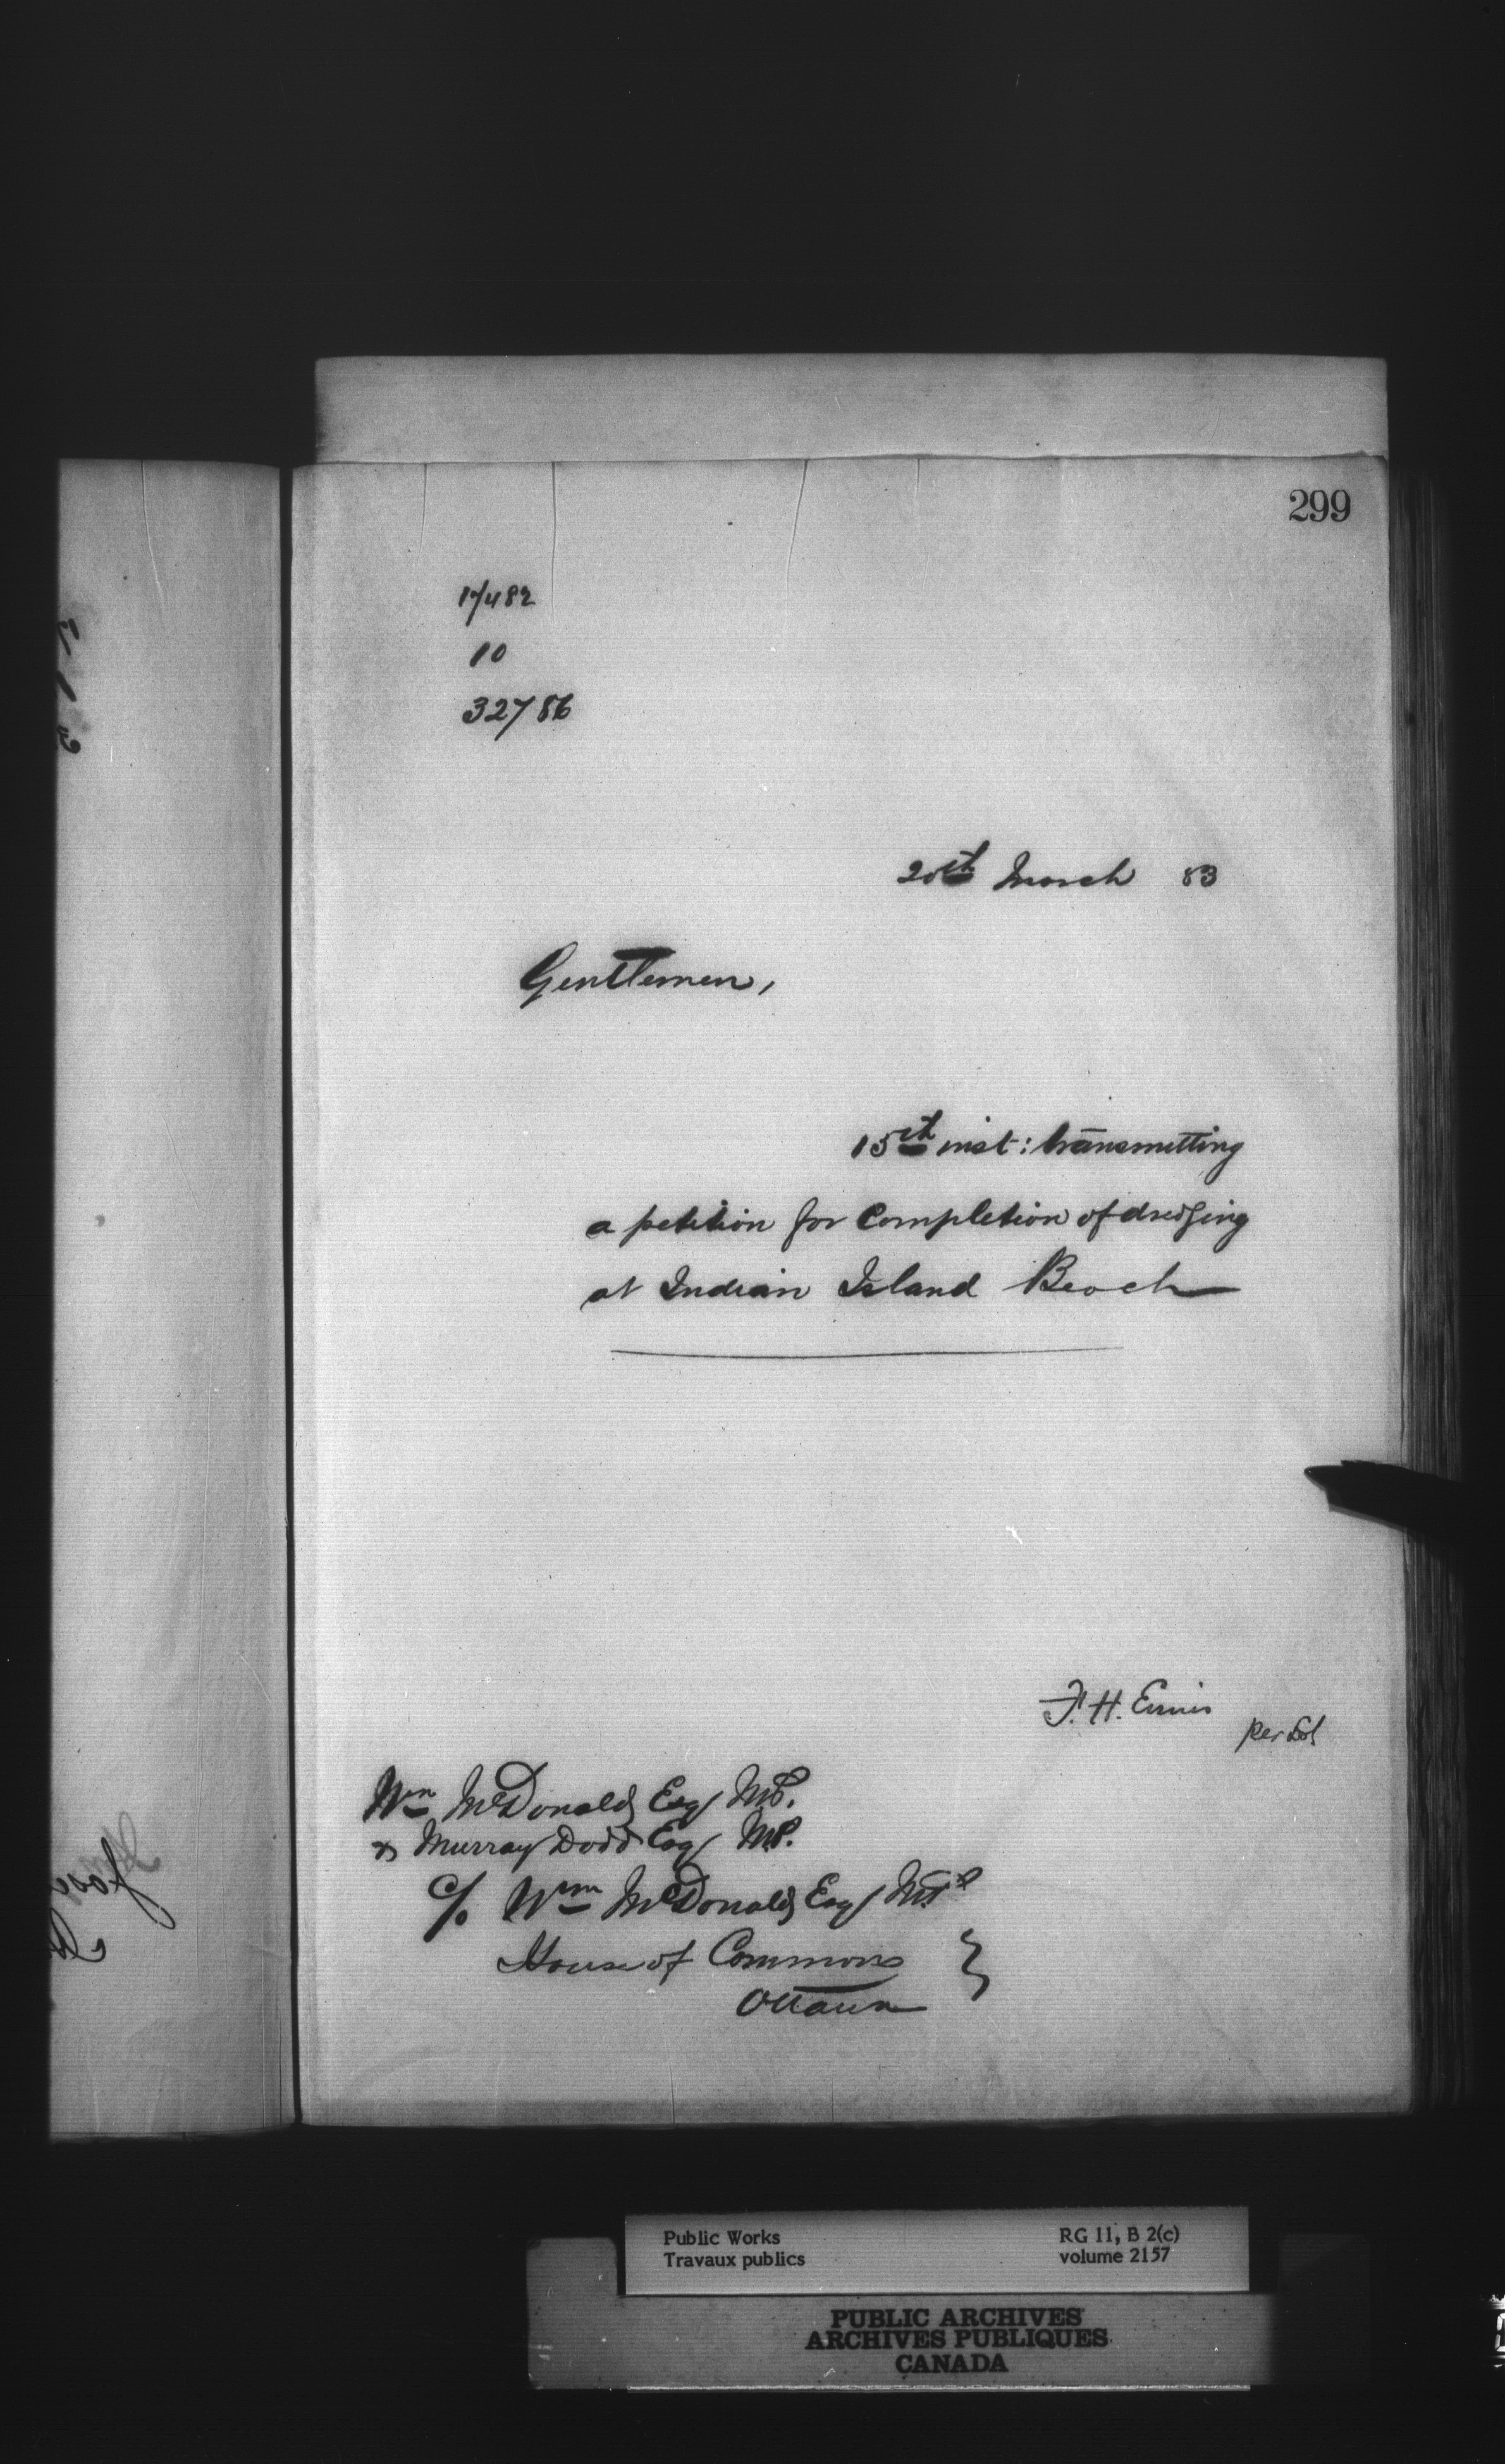 299
17482
10
32786
20th March 83
Gentlemen,
15th inst: transmitting
a petition for Completion of dredging
at Indian Island Beach
F. H. Ennis
per
Wm McDonald Esq MP.
& Murray Dodd Esq MP.
c/o Wm McDonald Esq MP
House of Commons
Ottawa
Public Works
Travaux publics
RG 11, B 2(c)
volume 2157
PUBLIC ARCHIVES
ARCHIVES PUBLIQUES
CANADA